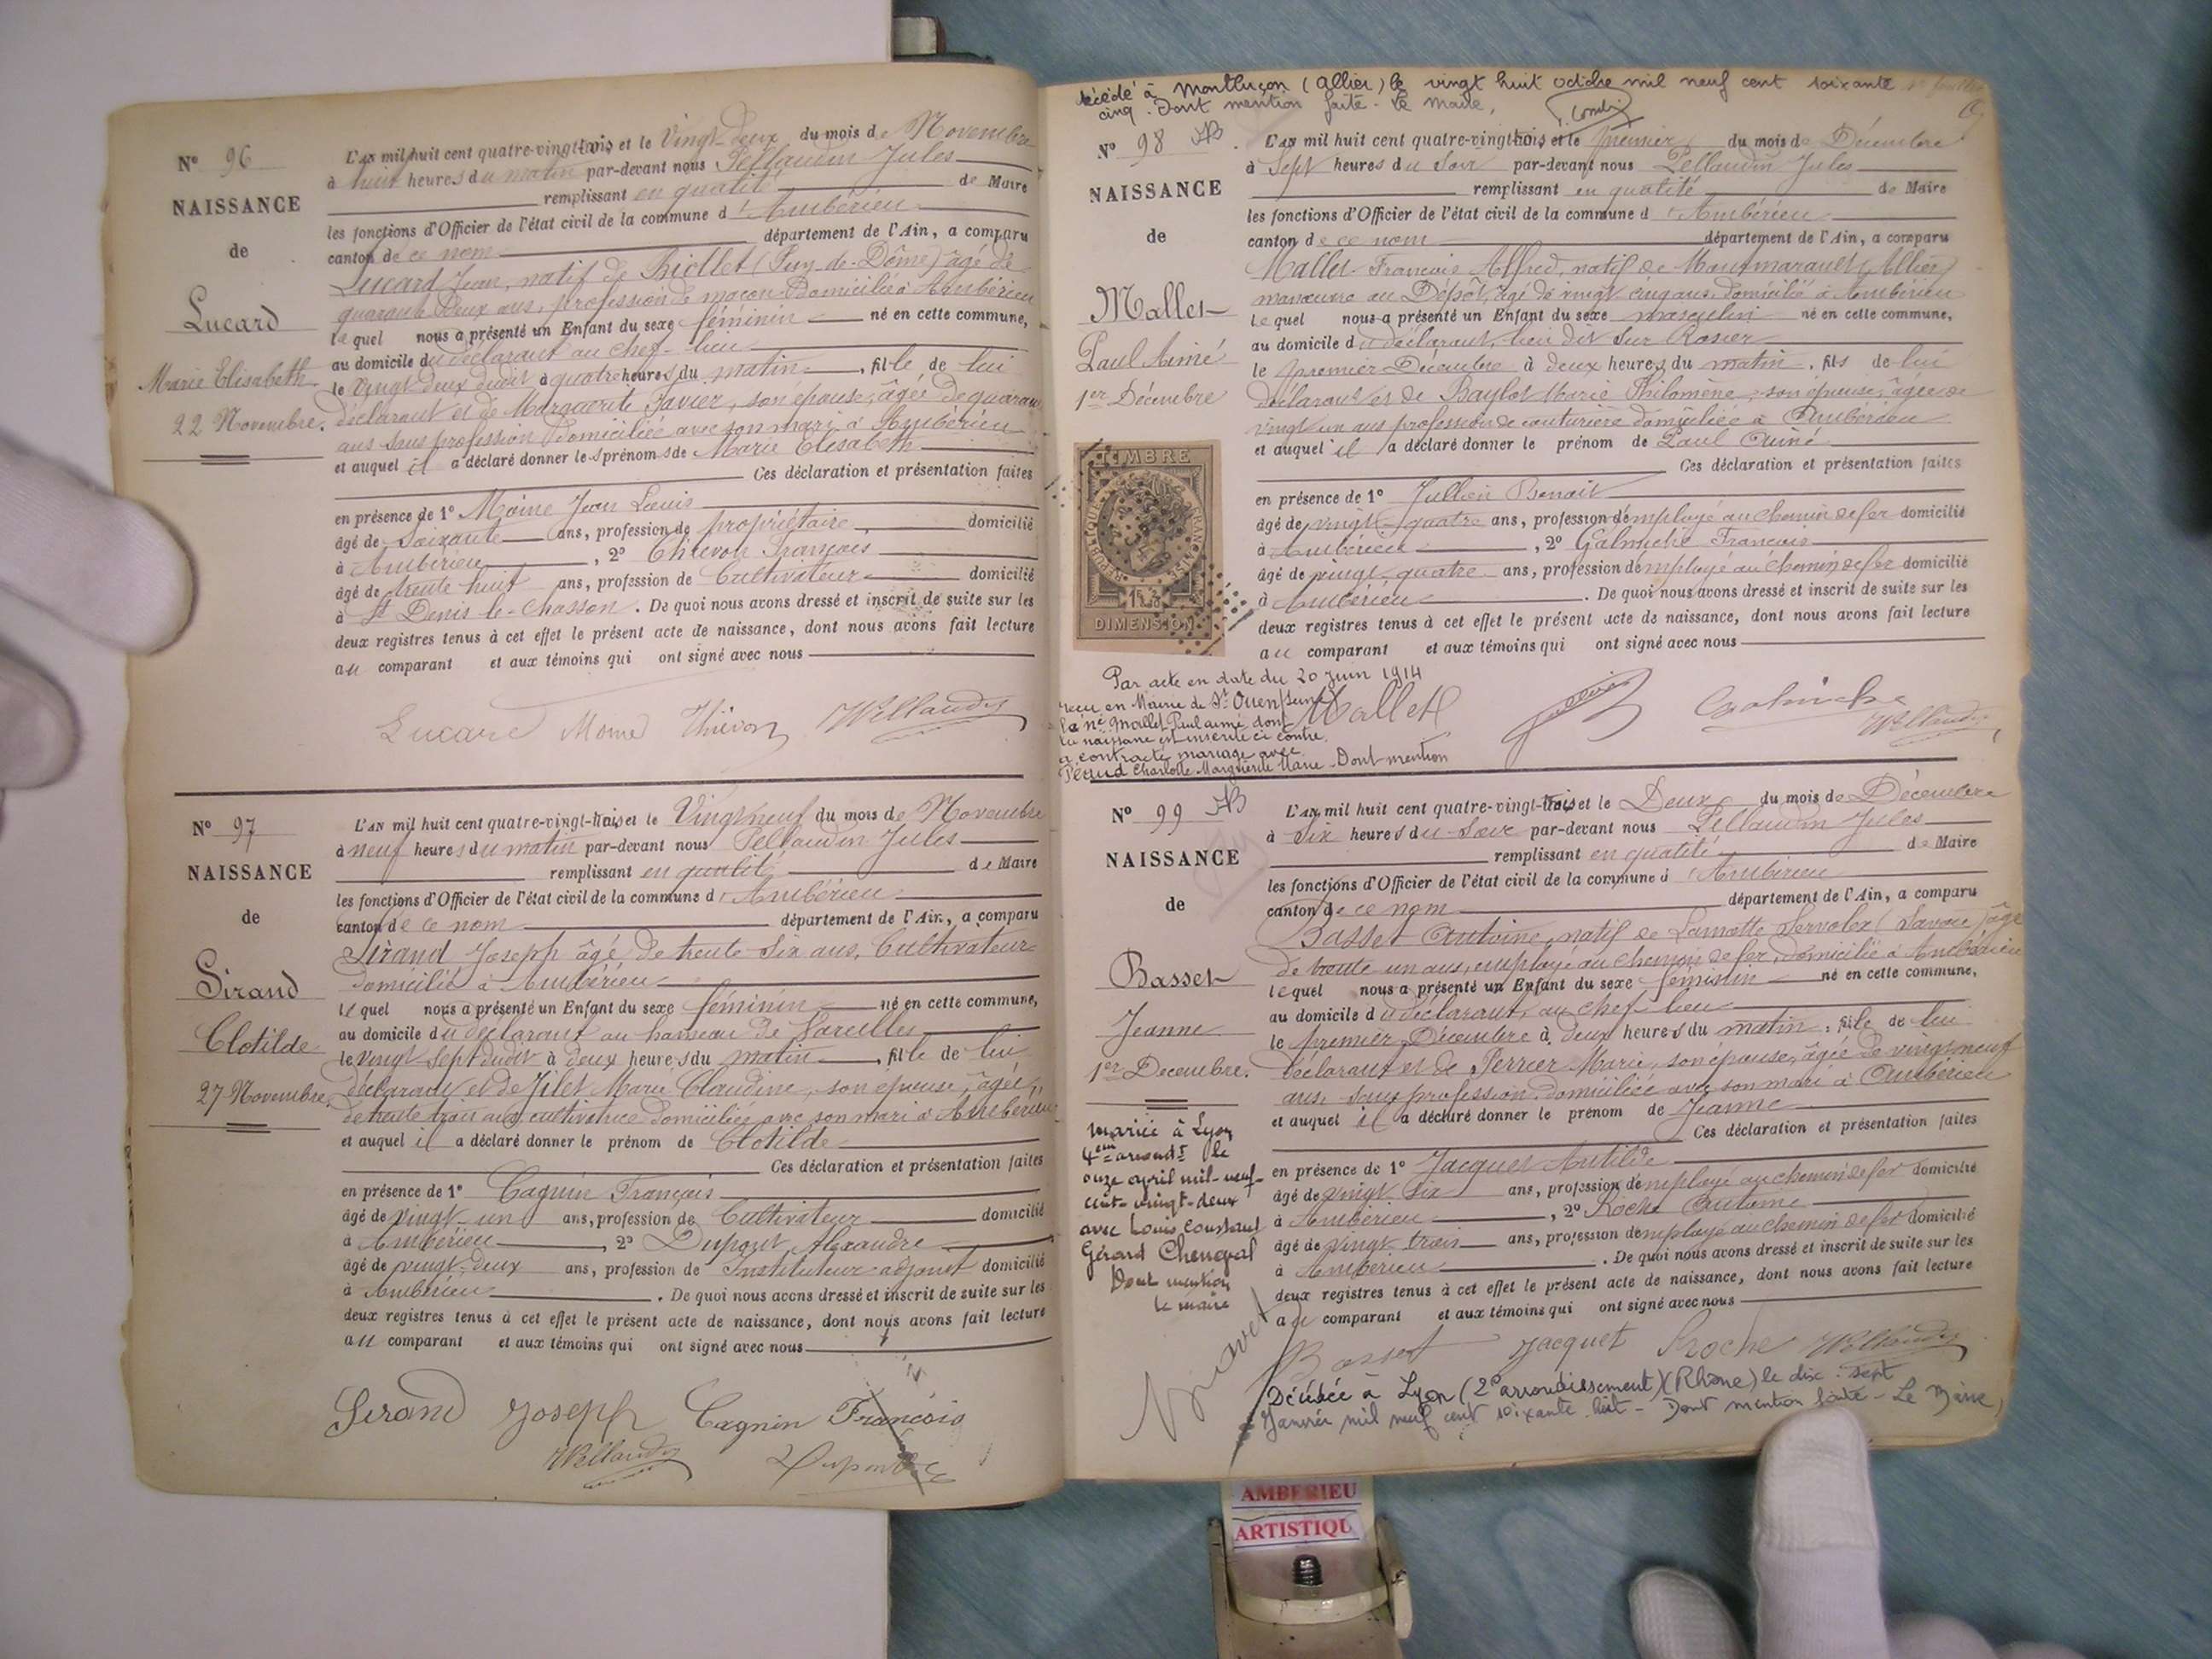 N° 96
NAISSANCE
de
Lucard
Marie Elisabeth
22 Novembre.
L'AN mil huit cent quatre-vingt-trois et le Vingt-deux du mois de Novembre
à huit heures du matin par-devant nous Pellaudin Jules
remplissant en qualité de Maire
les fonctions d'Officier de l'état civil de la commune d'Ambérieu
canton de ce nom département de l'Ain, a comparu
Lucard Jean, natif de Biollet (Puy-de-Dôme) âgé de
quarante deux ans, profession de maçon domicilié à Ambérieu
lequel nous a présenté un Enfant du sexe féminin né en cette commune,
au domicile du déclarant au chef-lieu
le vingt deux dudit à quatre heures du matin, fille de lui
déclarant et de Marguerite Favier, son épouse, âgée de quarante
ans sans profession domiciliée avec son mari à Ambérieu
et auquel il a déclaré donner les prénoms de Marie Elisabeth
Ces déclaration et présentation faites
en présence de 1° Moine Jean Louis
âgé de Soixante ans, profession de propriétaire domicilié
à Ambérieu, 2° Thievon François
âgé de trente huit ans, profession de Cultivateur domicilié
à St Denis-le-Chosson. De quoi nous avons dressé et inscrit de suite sur les
deux registres tenus à cet effet le présent acte de naissance, dont nous avons fait lecture
au comparant et aux témoins qui ont signé avec nous
Lucard Moine Thievon JPellaudin
N° 97
NAISSANCE
de
Sirand
Clotilde
27 Novembre.
L'AN mil huit cent quatre-vingt-trois et le Vingt neuf du mois de Novembre
à neuf heures du matin par-devant nous Pellaudin Jules
remplissant en qualité de Maire
les fonctions d'Officier de l'état civil de la commune d'Ambérieu
canton de ce nom département de l'Ain, a comparu
Sirand Joseph âgé de trente-six ans, Cultivateur
domicilié à Ambérieu
lequel nous a présenté un Enfant du sexe féminin né en cette commune,
au domicile du déclarant au hameau de Vareilles
le vingt sept dudit à deux heures du matin, fille de lui
déclarant et de Marie Claudine, son épouse, âgée
de trente trois ans, cultivatrice domiciliée avec son mari à Ambérieu
et auquel il a déclaré donner le prénom de Clotilde
Ces déclaration et présentation faites
en présence de 1° Cagnin François
âgé de vingt-un ans, profession de Cultivateur domicilié
à Ambérieu, 2° Dupont Alexandre
âgé de vingt-deux ans, profession de Instituteur-adjoint domicilié
à Ambérieu. De quoi nous avons dressé et inscrit de suite sur les
deux registres tenus à cet effet le présent acte de naissance, dont nous avons fait lecture
au comparant et aux témoins qui ont signé avec nous
Sirand Joseph Cagnin François
JPellaudin Dupont
décédé à Montluçon (Allier) le vingt huit octobre mil neuf cent soixante
cinq. Dont mention faite - Le Maire,
N° 98
NAISSANCE
de
Mallet
Paul Aimé
1er Décembre
TIMBRE
DIMENSION
L'AN mil huit cent quatre-vingt-trois et le premier du mois de Décembre
à Sept heures du Soir par-devant nous Pellaudin Jules
remplissant en qualité de Maire
les fonctions d'Officier de l'état civil de la commune d'Ambérieu
canton de ce nom département de l'Ain, a comparu
Mallet François Alfred, natif de Montmarault (Allier)
manœuvre au Dépôt, âgé de vingt cinq ans, domicilié à Ambérieu
lequel nous a présenté un Enfant du sexe masculin né en cette commune,
au domicile du déclarant, lieu dit Sur Rosier
le premier Décembre à deux heures du matin, fils de lui
déclarant et de Baylot Marie Philomène, son épouse, âgée de
vingt un ans profession de couturière domiciliée à Ambérieu
et auquel il a déclaré donner le prénom de Paul Aimé
Ces déclaration et présentation faites
en présence de 1° Jullien Benoit
âgé de vingt-quatre ans, profession d'employé au chemin de fer domicilié
à Ambérieu, 2° Galmiche François
âgé de vingt-quatre ans, profession d'employé au chemin de fer domicilié
à Ambérieu. De quoi nous avons dressé et inscrit de suite sur les
deux registres tenus à cet effet le présent acte de naissance, dont nous avons fait lecture
au comparant et aux témoins qui ont signé avec nous
Mallet Galmiche JPellaudin
Par acte en date du 20 Juin 1914
reçu en Mairie de St Ouen (Seine)
le né Mallet Paul aimé dont
la naissance est inscrite ci contre,
a contracté mariage avec
Charlotte Marguerite Marie. Dont mention
N° 99
NAISSANCE
de
Basset
Jeanne
1er Décembre.
L'AN mil huit cent quatre-vingt-trois et le Deux du mois de Décembre
à Six heures du Soir par-devant nous Pellaudin Jules
remplissant en qualité de Maire
les fonctions d'Officier de l'état civil de la commune d'Ambérieu
canton de ce nom département de l'Ain, a comparu
Basset Antoine, natif de Lamotte Servolex (Savoie) âgé
de trente un ans, employé au chemin de fer, domicilié à Ambérieu
lequel nous a présenté un Enfant du sexe féminin né en cette commune,
au domicile du déclarant, au chef-lieu
le premier Décembre à deux heures du matin, fille de lui
déclarant et de Perrier Marie, son épouse, âgée de vingt neuf
ans, sans profession, domiciliée avec son mari à Ambérieu
et auquel il a déclaré donner le prénom de Jeanne
Ces déclaration et présentation faites
en présence de 1° Jacquet
âgé de vingt six ans, profession d'employé au chemin de fer domicilié
à Ambérieu, 2° Roche Antoine
âgé de vingt trois ans, profession d'employé au chemin de fer domicilié
à Ambérieu. De quoi nous avons dressé et inscrit de suite sur les
deux registres tenus à cet effet le présent acte de naissance, dont nous avons fait lecture
au comparant et aux témoins qui ont signé avec nous
Basset Jacquet Roche JPellaudin
mariée à Lyon
4ème arrondt le
onze avril mil-neuf-
cent-vingt-deux
avec Louis Constant
Gérard Chengval
Dont mention
le maire
Décédée à Lyon (2e arrondissement) (Rhône) le dix-sept
Janvier mil neuf cent soixante huit - Dont mention faite - Le Maire
AMBERIEU
ARTISTIQU